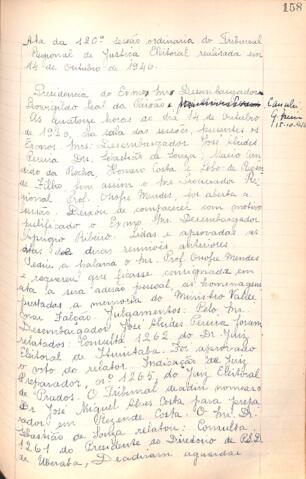 158
Ata da 120ª sessão ordinaria do Tribunal
Regional de Justiça Eleitoral realizada em
14 de Outubro de 1946.
Presidencia do Exmo Snr Desembargador
Leal da Paixão
Às quatorze horas do dia 14 de Outubro
de 1946, na sala das sessões, presentes os
Exmos Snrs: Desembargador José Alcides
Pereira Drs. Sebastião de Souza, Mario
da Rocha, Homero Costa e Lobo de Rezen
de Filho, bem assim o Snr Procurador Re
gional Prof. Onofre Mendes, foi aberta a
sessão. Deixou de comparecer com motivo
justificado o Exmo Snr. Desembargador
Aprigio Ribeiro. Lidas e aprovadas as
atas de duas reuniões anteriores
Pediu a palavra o Snr Prof. Onofre Mendes
e requereu que ficasse consignada em
ata a sua adesão pessoal, às homenagens
prestadas a memoria do Ministro Valde
mar Falcão. Julgamentos: Pelo Snr.
Desembargador José Alcides Pereira foram
relatados: Consulta 1262 do Dr. Juiz
Eleitoral de Ituiutaba. Foi aprovado
o voto do relator. Indicação de Juiz
Preparador, nº 1265, do Juiz Eleitoral
de Prados. O Tribunal decidiu nomear o
Dr José Miguel Alves Costa para prepa
rador em Rezende Costa. O Snr. Dr.
Sebastião de Souza relatou: Consulta
1261 do Presidente do Diretorio do P.S.D.
de Uberaba, Decidiram aguardar